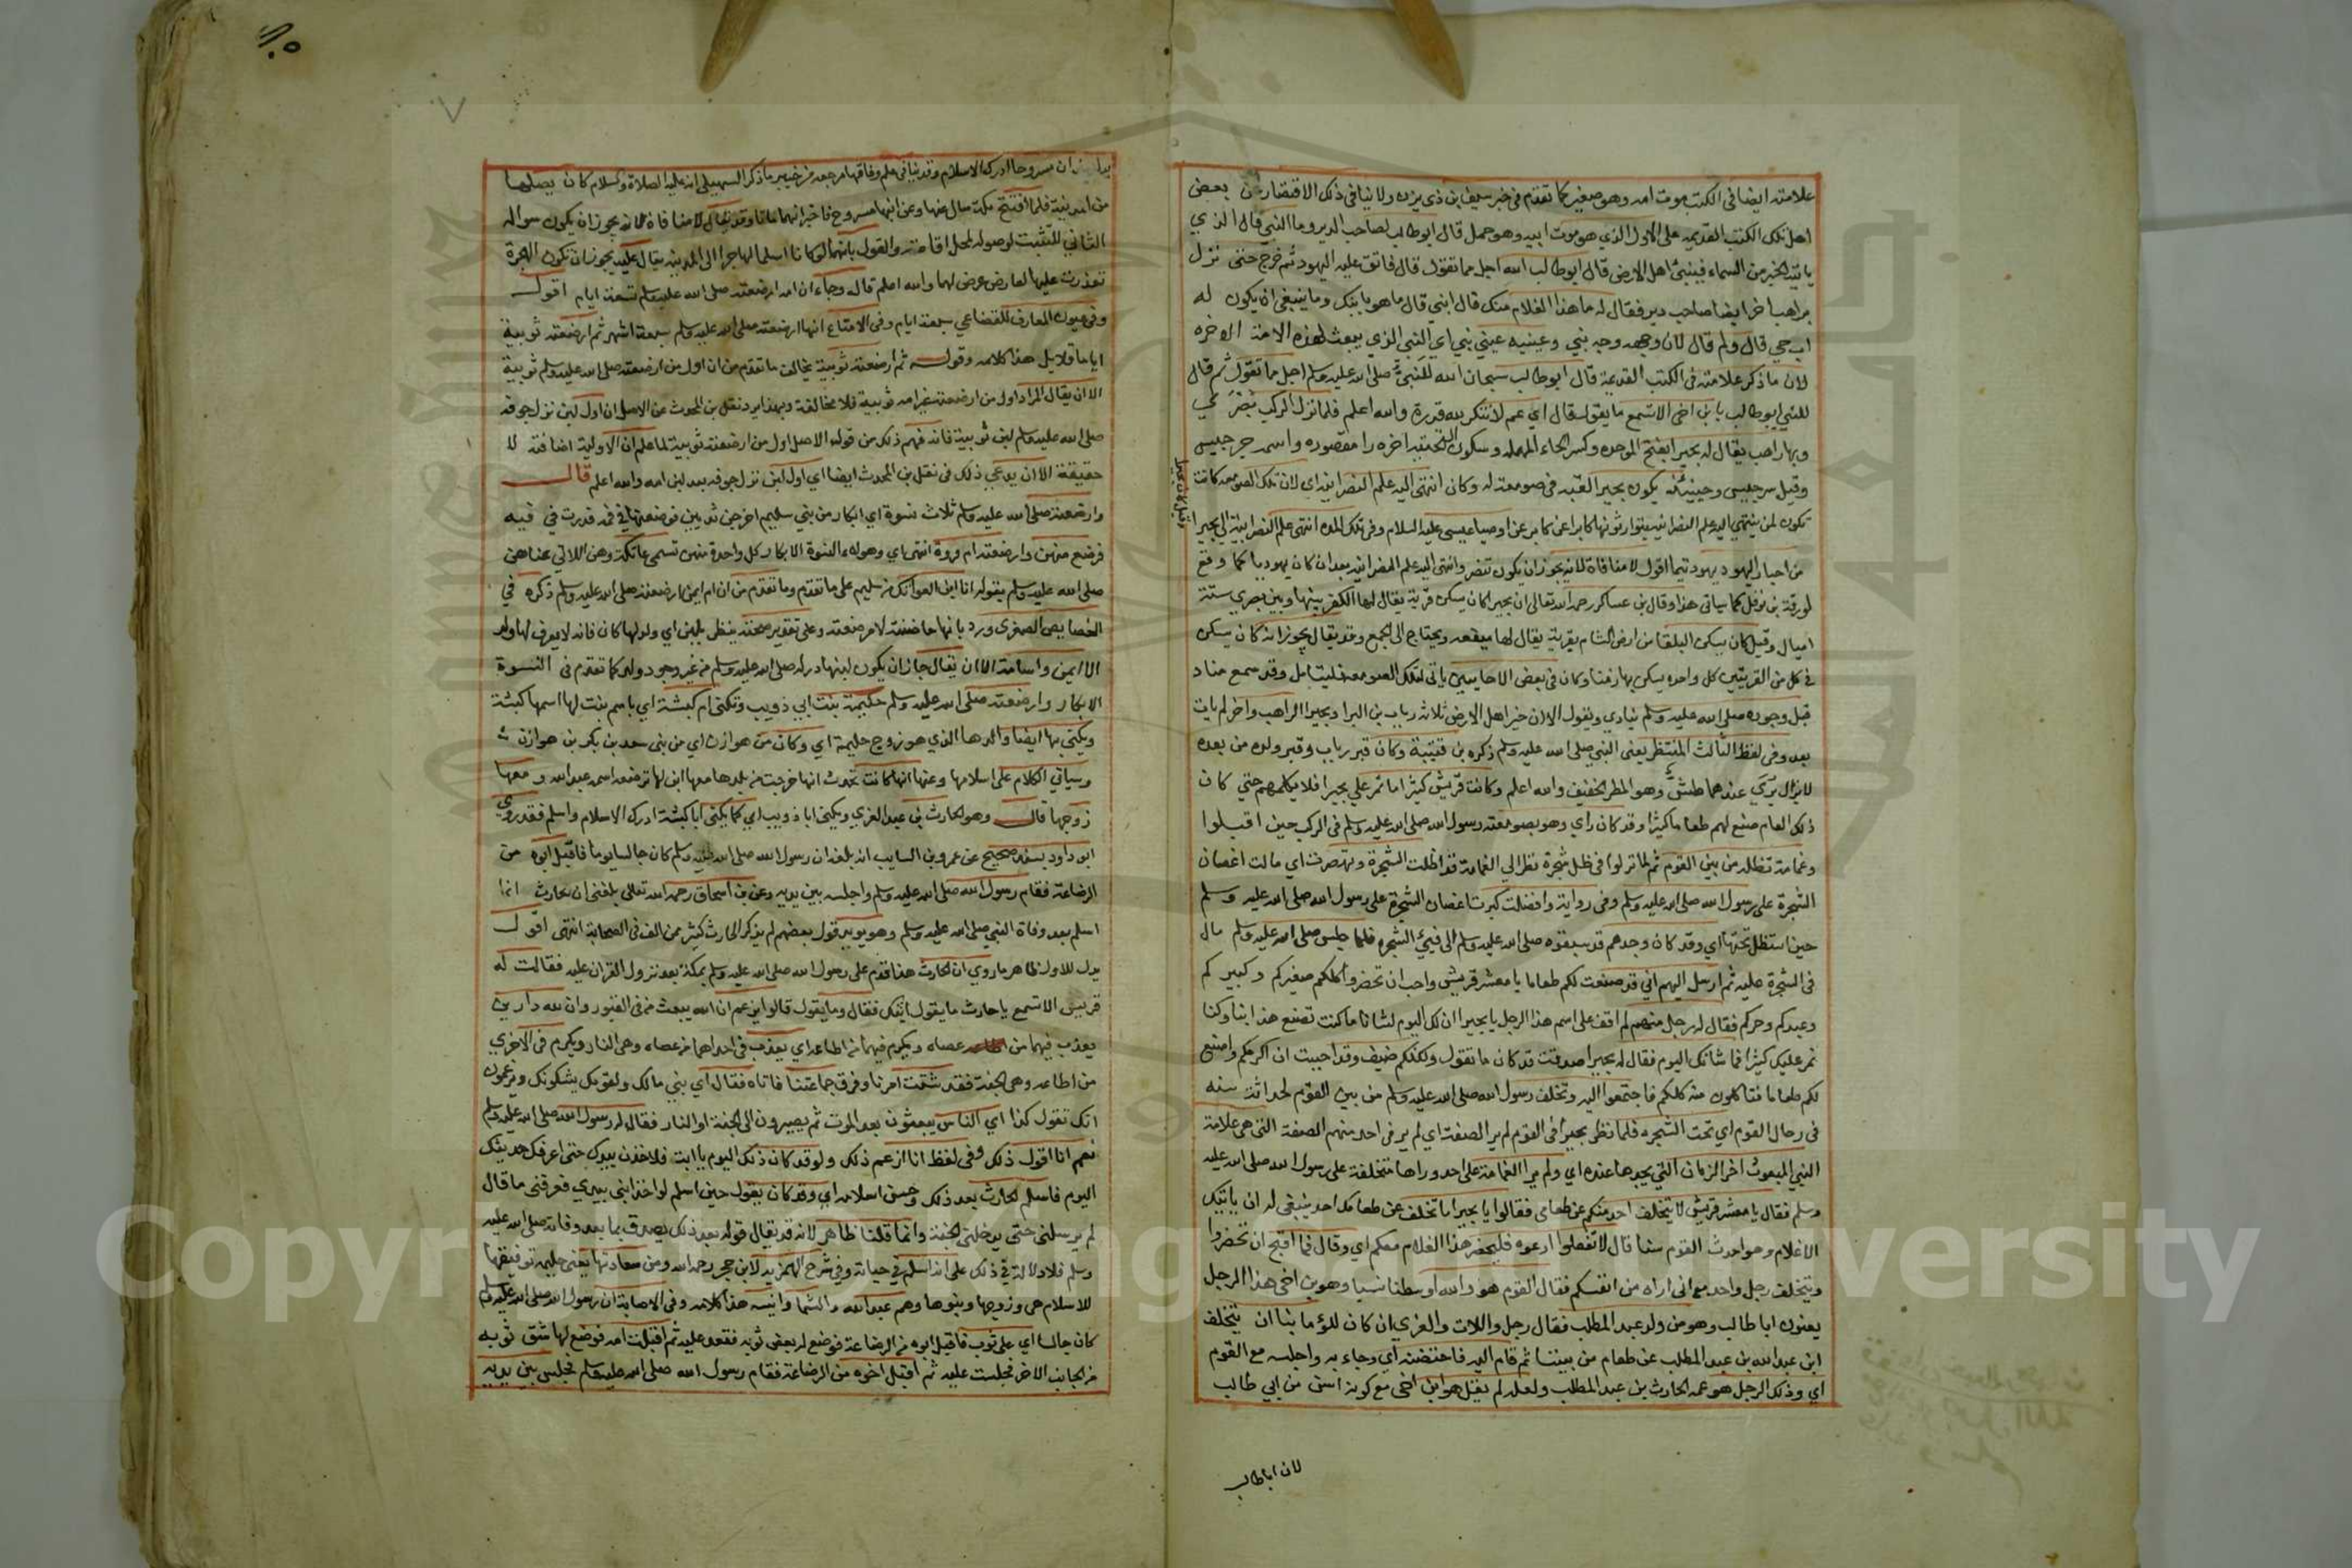 علامته ايضا في الكتب موت امه وهو صغير كما تقدم في خبر سيف بن ذي يزن ولا ينافي ذلك الاقتصار من بعض
اهل تلك الكتب القديمه على الاول الذي هو موت ابيه وهو حمل قال ابو طالب لصاحب الدير وما النبي قال الذي
ياتيه الخبر من السماء فينبئ اهل الارض قال ابو طالب الله اجل مما تقول قال فاتق عليه اليهود ثم خرج حتى نزل
براهب اخر ايضا صاحب دير فقال له ما هذا الغلام منك قال ابني قال ما هو بابنك وما ينبغي ان يكون له
اب حي قال ولم قال لان وجهه وجه نبي وعينيه عيني نبي اي النبي الذي يبعث لهذه الامة الاخره
لان ما ذكر علامته في الكتب القديمة قال ابو طالب سبحان الله للنبي صلى الله عليه وسلم اجل مما تقول ثم قال
للنبي ابو طالب يا بن اخي الا تسمع ما يقول فقال اي عم لا تنكر لله قدرة والله اعلم فلما نزل الركب بصرى
وبها راهب يقال له بحيرا بفتح الموحده وكسر الحاء المهمله وسكون التحتيه اخره را مقصوره واسمه جرجيس
وقيل سرجيس وحينيذ يكون بحيرا لقبه في صومعة له وكان انتهى اليه علم النصرانيه اي لان تلك الصومعه كانت
تكون لمن ينتهي اليه علم النصرانيه يتوارثونها كابرا عن كابر عن اوصيا عيسى عليه السلام وفي تلك المده انتهى علم النصرانية الى بحيرا
من احبار اليهود يهود تيما اقول لا منافاة لانه يجوز ان يكون تنصر وانتهى اليه علم النصرانيه بعد ان كان يهوديا كما وقع
لورقة بن نوفل كما سياتي هذا وقال بن عساكر رحمه الله تعالى ان بحيرا كان يسكن قرية يقال لها الكفر بينها وبين بصرى ستة
اميال وقيل كان يسكن البلقا من ارض الشام بقرية يقال لها ميفعه ويحتاج الى الجمع وقد يقال يجوز انه كان يسكن
في كل من القريتين كل واحده يسكن بها زمنا وكان في بعض الاحايين ياتي لتلك الصومعه فليتامل وقد سمع مناد
قبل وجوده صلى الله عليه وسلم ينادي ويقول الا ان خير اهل الارض ثلاثة رباب بن البرا وبحيرا الراهب واخر لم يات
بعد وفي لفظ الثالث المنتظر يعني النبي صلى الله عليه وسلم ذكره بن قتيبة وكان قبر رباب وقبر ولده من بعده
لا يزال يرى عندهما طش وهو المطر الخفيف والله اعلم وكانت قريش كثيرا ما تمر على بحيرا فلا يكلمهم حتى كان
ذلك العام صنع لهم طعاما كثيرا وقد كان راي وهو بصومعته رسول الله صلى الله عليه وسلم في الركب حين اقبلوا
وغمامة تظلله من بين القوم ثم لما نزلوا في ظل شجرة نظر الى الغمامة قد اظلت الشجرة وتهصرت اي مالت اغصان
الشجرة على رسول الله صلى الله عليه وسلم وفي رواية واخضلت اغصان الشجرة على رسول الله صلى الله عليه وسلم
حين استظل تحتها اي وقد كان وجدهم قد سبقوه صلى الله عليه وسلم الى فيئ الشجره فلما جلس صلى الله عليه وسلم مال
فئ الشجرة عليه ثم ارسل اليهم اني قد صنعت لكم طعاما يا معشر قريش واحب ان تحضروا كلكم صغيركم وكبيركم
وعبدكم وحركم فقال له رجل منهم لم اقف على اسم هذا الرجل يا بحيرا ان لك اليوم لشانا ما كنت تصنع هذا بنا وكنا
نمر عليك كثيرا فما شانك اليوم فقال له بحيرا صدقت قد كان ما تقول ولكنكم ضيف وقد احببت ان اكرمكم واصنع
لكم طعاما فتاكلون منه كلكم فاجتمعوا اليه وتخلف رسول الله صلى الله عليه وسلم من بين القوم لحداثة سنه
في رحال القوم اي تحت الشجره فلما نظر بحيرا في القوم لم ير الصفة اي لم ير في احد منهم الصفة التي هي علامة
النبي المبعوث اخر الزمان التي يجدها عنده اي ولم ير الغمامة على احد وراها متخلفة على رسول الله صلى الله عليه
وسلم فقال يا معشر قريش لا يتخلف احد منكم عن طعامي فقالوا يا بحيرا ما تخلف عن طعامك احد ينبغي له ان ياتيك
الا غلام وهو احدث القوم سنا قال لا تفعلوا ادعوه فليحضر هذا الغلام معكم اي وقال فما اقبح ان تحضروا
ويتخلف رجل واحد مع اني اراه من انفسكم فقال القوم هو والله اوسطنا نسبا وهو بن اخي هذا الرجل
يعنون ابا طالب وهو من ولد عبد المطلب فقال رجل واللات والعزى ان كان للؤما بنا ان يتخلف
ابن عبد الله بن عبد المطلب عن طعام من بيننا ثم قام اليه فاحتضنه اي وجاء به واجلسه مع القوم
اي وذلك الرجل هو عمه الحارث بن عبد المطلب ولعله لم يقل هو ابن اخي مع كونه اسن من ابي طالب
لان ابا طالب
ان مسروحا ادرك الاسلام وقد ينافي مرجعه من خيبر ما ذكر السهيلي انه عليه الصلاة والسلام كان يصلها
من المدينة فلما افتتح مكة سال عنها وعن ابنها مسروح فاخبر انهما ماتا وقد يقال لا منافاة لانه يجوز ان يكون سواله
الثاني للتثبت لوصوله لمحل اقامته والقول بانهما لو كانا اسلما لهاجرا الى المدينة يقال عليه يجوز ان تكون الهجرة
تعذرت عليها لعارض عرض لهما والله اعلم قال وجاء ان امه ارضعته صلى الله عليه وسلم تسعة ايام اقول
وفي عيون المعارف للقضاعي سبعة ايام وفي الامتاع انها ارضعته صلى الله عليه وسلم سبعة اشهر ثم ارضعته ثويبة
اياما قلايل هذا كلامه وقوله ثم ارضعته ثويبة يخالف ما تقدم من ان اول من ارضعته صلى الله عليه وسلم ثويبة
الا ان يقال المراد اول من ارضعته غير امه ثويبة فلا مخالفة وبهذا يرد نقل بن المحدث عن الاصل ان اول لبن نزل جوفه
صلى الله عليه وسلم لبن ثويبة فانه فهم ذلك من قوله الاصل اول من ارضعته ثويبة لما علم ان الاولية اضافية لا
حقيقة الا ان يدعى ذلك في نقل بن المحدث ايضا اي اول لبن نزل جوفه بعد لبن امه والله اعلم قال
وارضعته صلى الله عليه وسلم ثلاث نسوة اي ابكار من بني سليم اخرجن ثديهن فوضعنها في فمه فدرت في فيه
فرضع منهن وارضعته ام فروة انتهى اي وهولاء النسوة الابكار كل واحدة منهن تسمى عاتكة وهن اللاتي عناهن
صلى الله عليه وسلم بقوله انا ابن العواتك من سليم على ما تقدم وما تقدم من ان ام ايمن ارضعته صلى الله عليه وسلم ذكره في
الخصايص الصغرى ورد بانها حاضنته لا مرضعته وعلى تقدير صحته ينظر بلبن اي ولد لها كان فانه لا يعرف لها ولد
الا ايمن واسامة الا ان يقال جاز ان يكون لبنها در له صلى الله عليه وسلم من غير وجود ولد كما تقدم في النسوة
الابكار وارضعته صلى الله عليه وسلم حليمة بنت ابي ذويب وتكنى ام كبشة اي باسم بنت لها اسمها كبشة
ويكنى بها ايضا والدها الذي هو زوج حليمة اي وكان من هوازن اي من بني سعد بن بكر بن هوازن
وسياتي الكلام على اسلامها وعنها انها كانت تحدث انها خرجت من بلدها معها ابن لها ترضعه اسمه عبد الله ومعها
زوجها قال وهو الحارث بن عبد العزي ويكنى ابا ذويب اي كما يكنى ابا كبشة ادرك الاسلام واسلم فقد روي
ابو داود بسند صحيح عن عمرو بن السايب انه بلغه ان رسول الله صلى الله عليه وسلم كان جالسا يوما فاقبل ابوه من
الرضاعة فقام رسول الله صلى الله عليه وسلم واجلسه بين يديه وعن بن اسحاق رحمه الله تعالى بلغني ان الحارث انما
اسلم بعد وفاة النبي صلى الله عليه وسلم وهو يويد قول بعضهم لم يذكر الحارث كثير ممن الف في الصحابة انتهى اقول
يدل للاول ظاهر ما روي ان الحارث هذا قدم على رسول الله صلى الله عليه وسلم بمكة بعد نزول القران عليه فقالت له
قريش الا تسمع يا حارث ما يقول ابنك فقال وما يقول قالوا يزعم ان الله يبعث من في القبور وان لله دارين
يعذب فيهما من عصاه ويكرم فيهما من اطاعه اي يعذب في احداهما من عصاه وهي النار ويكرم في الاخرى
من اطاعه وهي الجنة فقد شتت امرنا وفرق جماعتنا فاتاه فقال اي بني مالك ولقومك يشكونك ويزعمون
انك تقول كذا اي الناس يبعثون بعد الموت ثم يصيرون الى الجنة او النار فقال له رسول الله صلى الله عليه وسلم
نعم انا اقول ذلك وفي لفظ انا ازعم ذلك ولو قد كان ذلك اليوم يا ابت فلاخذن بيدك حتى اعرفك حديثك
اليوم فاسلم الحارث بعد ذلك وحسن اسلامه اي وقد كان يقول حين اسلم لو اخذ ابني بيدي فعرفني ما قال
لم يرسلني حتى يدخلني الجنة وانما قلنا ظاهر لانه قد يقال قوله بعد ذلك يصدق بما بعد وفاته صلى الله عليه
وسلم فلا دلالة في ذلك على انه اسلم في حياته وفي شرح الهمزيه لابن حجر رحمه الله ومن سعادتها يعني حليمه توفيقها
للاسلام هي وزوجها وبنوها وهم عبد الله والشما وانيسه هذا كلامه وفي الاصابة ان رسول الله صلى الله عليه وسلم
كان جالسا اي على ثوب فاقبل ابوه من الرضاعة فوضع له بعض ثوبه فقعد عليه ثم اقبلت امه فوضع لها شق ثوبه
من الجانب الاخر فجلست عليه ثم اقبل اخوه من الرضاعة فقام رسول الله صلى الله عليه وسلم فجلس بين يديه
Copyright © King Saud University